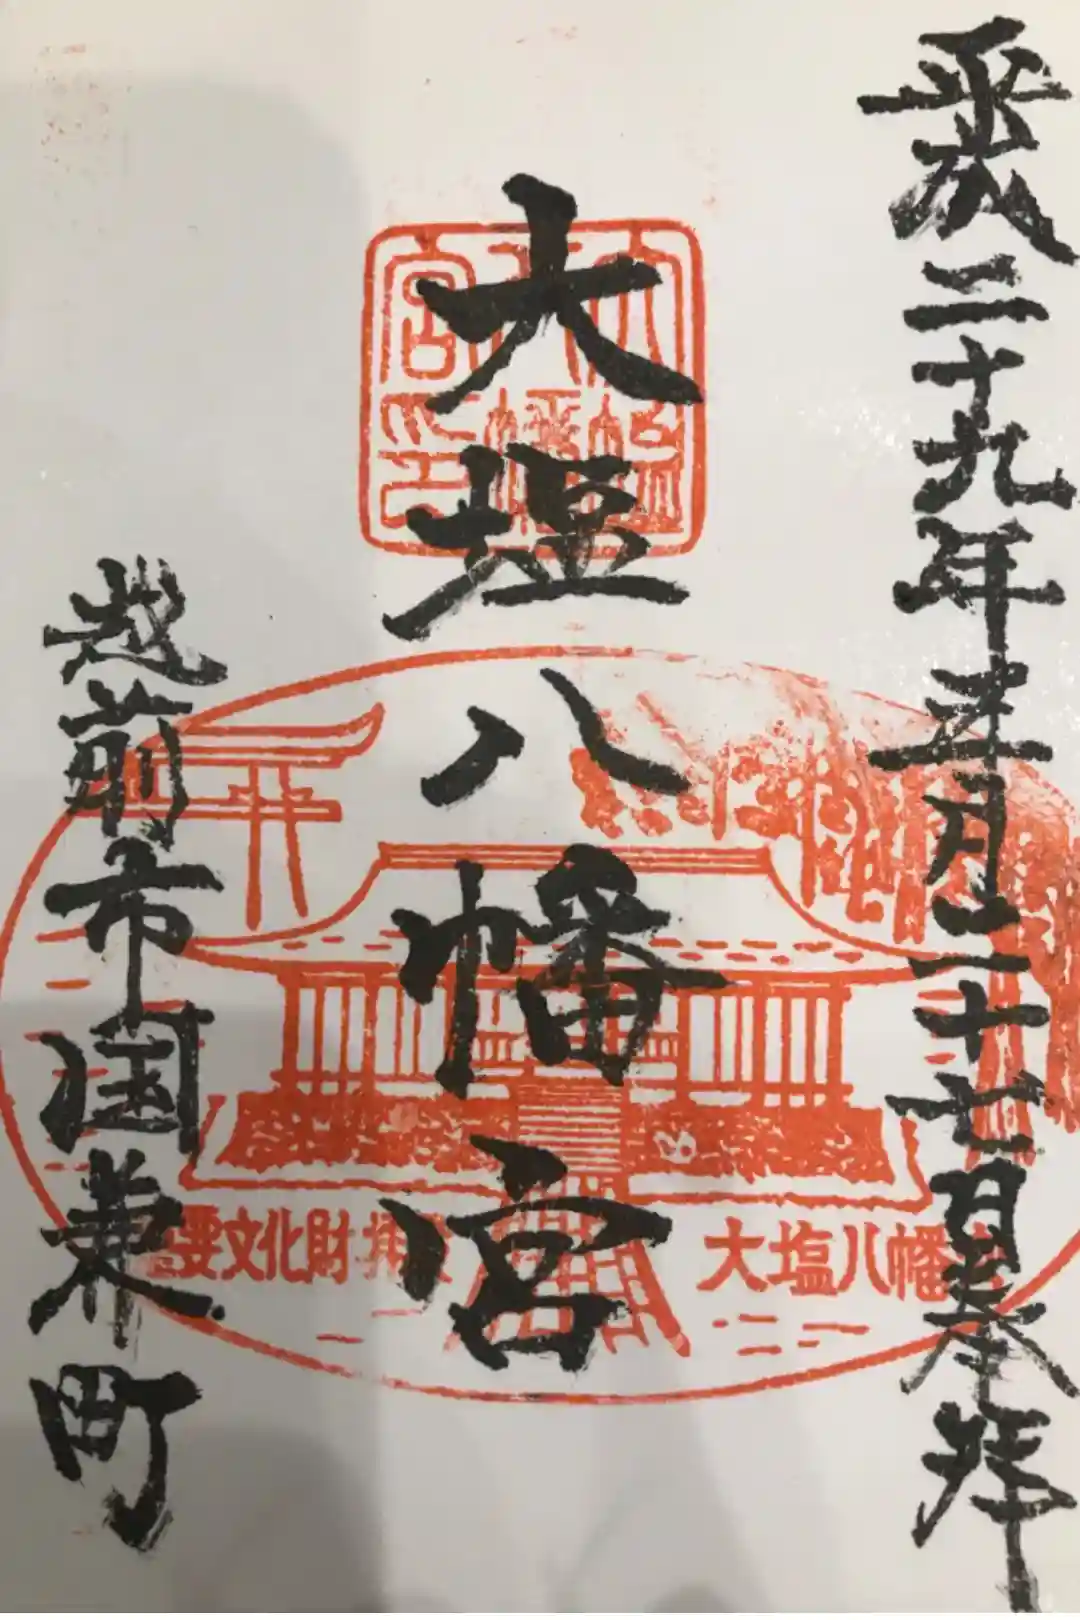 平成二十九年五月二十七日奉拝
大塩八幡宮
越前市国兼町
大塩八幡宮印
重要文化財 拝殿 大塩八幡宮